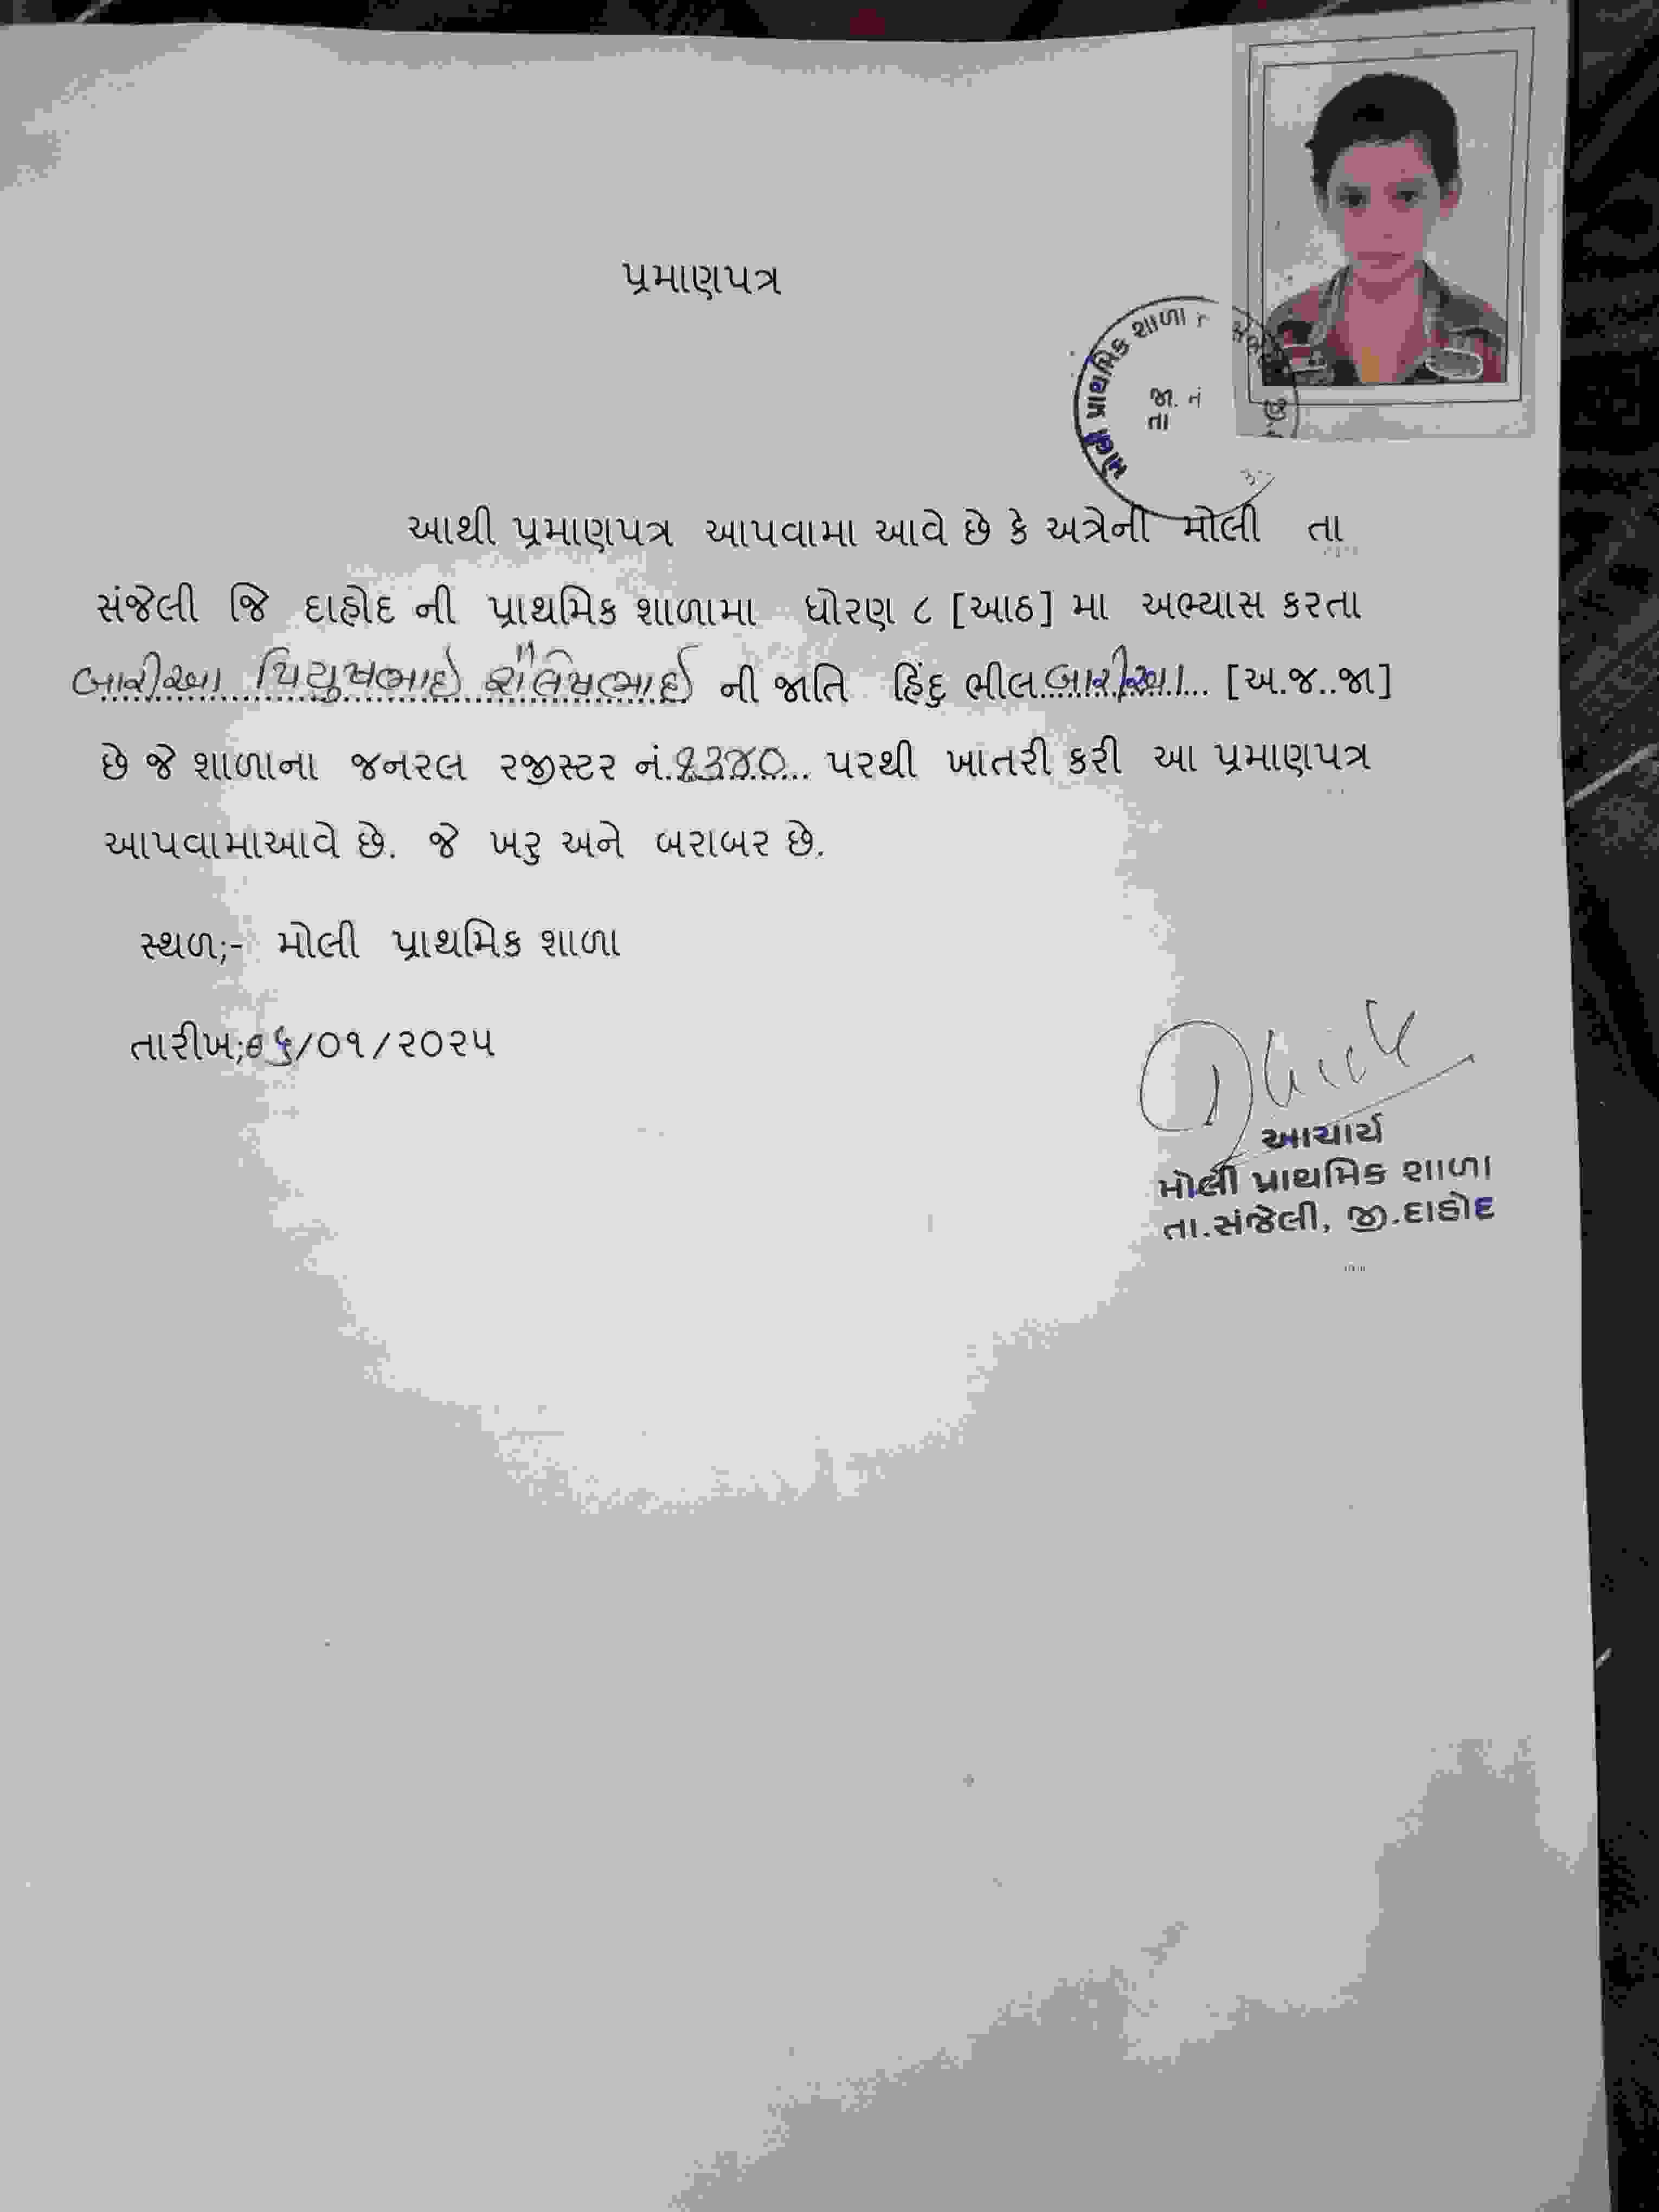 પ્રમાણપત્ર
પ્રાથમિક શાળા
જા. નં
તા
આથી પ્રમાણપત્ર આપવામા આવે છે કે અત્રેની મોલી તા
સંજેલી જિ દાહોદ ની પ્રાથમિક શાળામા ધોરણ ૮ [આઠ] મા અભ્યાસ કરતા
બારીઆ પિયુષભાઈ શૈલેષભાઈ ની જાતિ હિંદુ ભીલ બારીઆ [અ.જ..જા]
છે જે શાળાના જનરલ રજીસ્ટર નં. ૨૩૪૦ પરથી ખાતરી કરી આ પ્રમાણપત્ર
આપવામાઆવે છે. જે ખરુ અને બરાબર છે.
સ્થળ;- મોલી પ્રાથમિક શાળા
તારીખ;૦૬/૦૧/૨૦૨૫
આચાર્ય
મોલી પ્રાથમિક શાળા
તા.સંજેલી, જી.દાહોદ